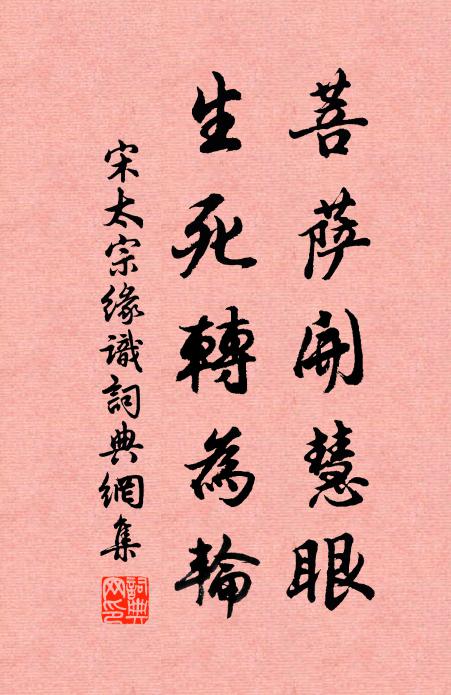 菩萨開慧眼
生死轉為輪
宋太宗緣識詞典網集
詞典網印